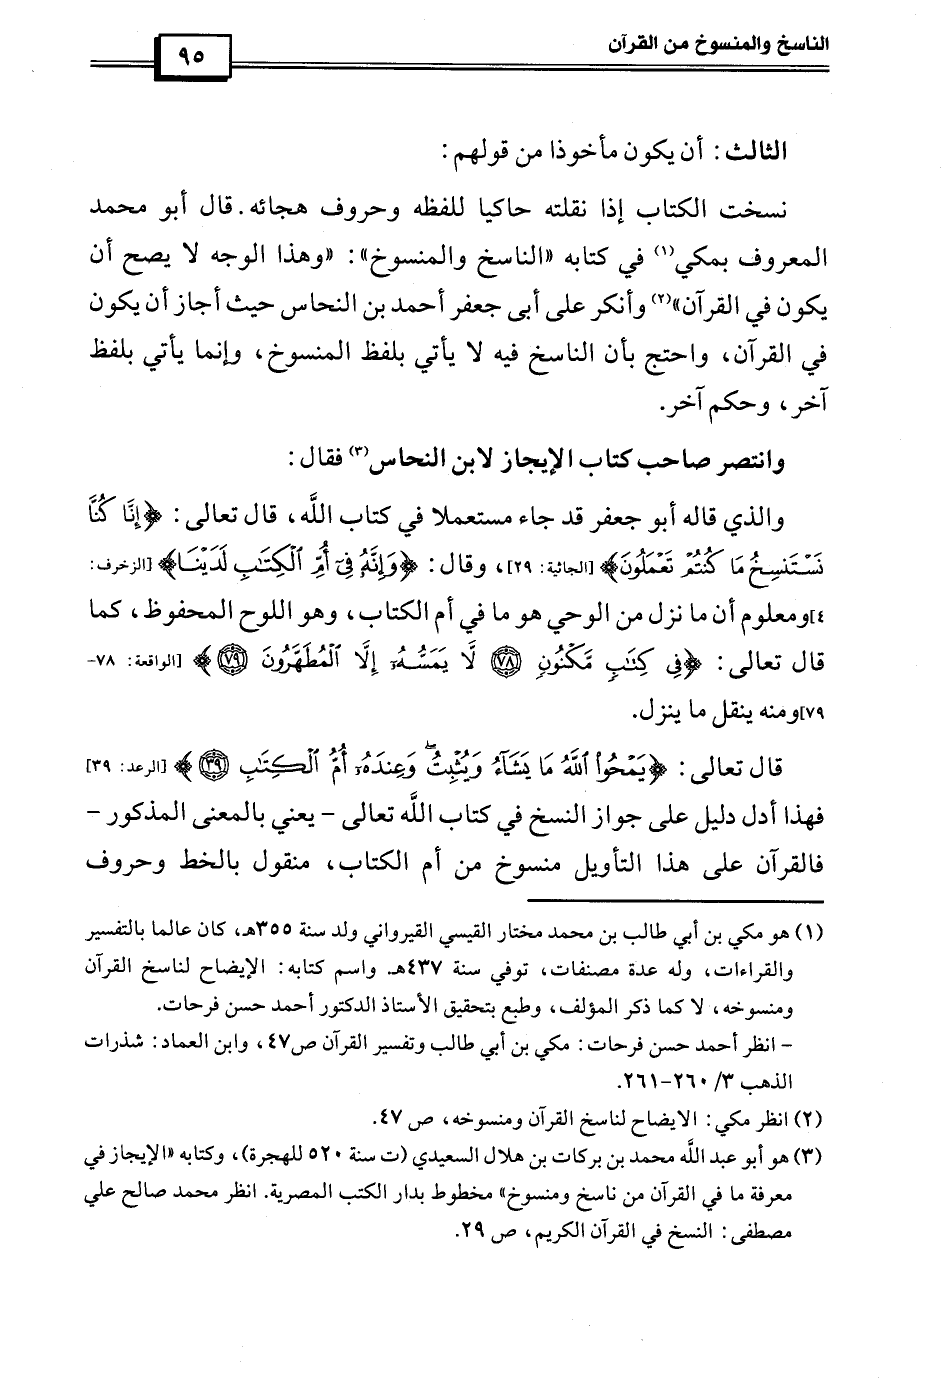 الناسخ والمنسوخ من القرآن
٩٥
الثالث: أن يكون مأخوذا من قولهم:
نسخت الكتاب إذا نقلته حاكيا للفظه وحروف هجائه. قال أبو محمد
المعروف بمكي(١) في كتابه «الناسخ والمنسوخ»: «وهذا الوجه لا يصح أن
يكون في القرآن»(٢) وأنكر على أبى جعفر أحمد بن النحاس حيث أجاز أن يكون
في القرآن، واحتج بأن الناسخ فيه لا يأتي بلفظ المنسوخ، وإنما يأتي بلفظ
آخر، وحكم آخر.
وانتصر صاحب كتاب الإيجاز لابن النحاس(٣) فقال:
والذي قاله أبو جعفر قد جاء مستعملا في كتاب اللَّه، قال تعالى: ﴿إِنَّا كُنَّا
نَسْتَنسِخُ مَا كُنتُمْ تَعْمَلُونَ﴾ [الجاثية: ٢٩]، وقال: ﴿وَإِنَّهُۥ فِىٓ أُمِّ ٱلْكِتَٰبِ لَدَيْنَا﴾ [الزخرف:
٤] ومعلوم أن ما نزل من الوحي هو ما في أم الكتاب، وهو اللوح المحفوظ، كما
قال تعالى: ﴿فِى كِتَٰبٍ مَّكْنُونٍ ٧٨ لَّا يَمَسُّهُۥٓ إِلَّا ٱلْمُطَهَّرُونَ ٧٩﴾ [الواقعة: ٧٨-
٧٩] ومنه ينقل ما ينزل.
قال تعالى: ﴿يَمْحُوا۟ ٱللَّهُ مَا يَشَآءُ وَيُثْبِتُ ۖ وَعِندَهُۥٓ أُمُّ ٱلْكِتَٰبِ ٣٩﴾ [الرعد: ٣٩]
فهذا أدل دليل على جواز النسخ في كتاب اللَّه تعالى – يعني بالمعنى المذكور –
فالقرآن على هذا التأويل منسوخ من أم الكتاب، منقول بالخط وحروف
(١) هو مكي بن أبي طالب بن محمد مختار القيسي القيرواني ولد سنة ٣٥٥هـ، كان عالما بالتفسير
والقراءات، وله عدة مصنفات، توفي سنة ٤٣٧هـ. واسم كتابه: الإيضاح لناسخ القرآن
ومنسوخه، لا كما ذكر المؤلف، وطبع بتحقيق الأستاذ الدكتور أحمد حسن فرحات.
– انظر أحمد حسن فرحات: مكي بن أبي طالب وتفسير القرآن ص٤٧، وابن العماد: شذرات
الذهب ٣/ ٢٦٠-٢٦١.
(٢) انظر مكي: الايضاح لناسخ القرآن ومنسوخه، ص ٤٧.
(٣) هو أبو عبد اللَّه محمد بن بركات بن هلال السعيدي (ت سنة ٥٢٠ للهجرة)، وكتابه «الإيجاز في
معرفة ما في القرآن من ناسخ ومنسوخ» مخطوط بدار الكتب المصرية. انظر محمد صالح علي
مصطفى: النسخ في القرآن الكريم، ص ٢٩.